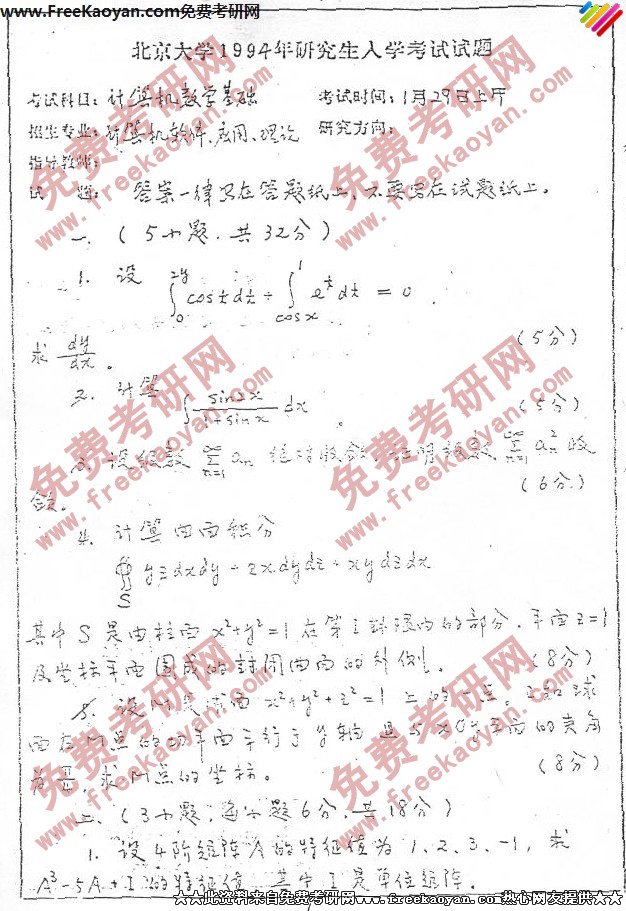 www.FreeKaoyan.com免费考研网
北京大学1994年研究生入学考试试题
考试科目: 计算机数学基础 考试时间: 1月29日上午
招生专业: 计算机软件、应用、理论 研究方向:
指导教师:
试 题: 答案一律写在答题纸上,不要写在试题纸上。
一、(5小题,共32分)
1. 设 ∫₀^{2y} cos t dt + ∫_{cos x}^{1} e^t dt = 0,
求 dy/dx。 (5分)
2. 计算 ∫ sin2x/(1+sin x) dx 。 (5分)
3. 设级数 ∑_{n=1}^{∞} a_n 绝对收敛,证明级数 ∑_{n=1}^{∞} a_n² 收
敛。 (6分)
4. 计算曲面积分
∯_S yz dxdy + zx dydz + xy dzdx
其中 S 是由柱面 x²+y²=1 在第 部分,平面 z=1
及坐标平面围成的封闭曲面的外侧。 (8分)
5. 设M是球面 x²+y²+z²=1 上的一点,已知球
面在M点的切平面平行于y轴且与xOy平面的夹角
为 ,求M点的坐标。 (8分)
二、(3小题,每小题6分,共18分)
1. 设4阶矩阵A的特征值为1、2、3、-1,求
A³-5A+I的特征值,其中I是单位矩阵。
★★此资料来自免费考研网www.freekaoyan.com热心网友提供★★
免费考研网
www.freekaoyan.com
免费考研网
www.freekaoyan.com
免费考研网
www.freekaoyan.com
免费考研网
www.freekaoyan.com
免费考研网
www.freekaoyan.com
免费考研网
www.freekaoyan.com